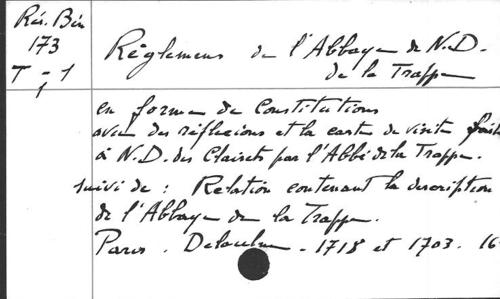 Rés. Bén
173
T - 1
1
Règlemens de l'Abbaye de N.D.
de la Trappe
en forme de Constitutions
avec des réflexions et la carte de visite faite
à N.D. des Clairets par l'Abbé de la Trappe.
suivi de : Relation contenant la description
de l'Abbaye de la Trappe.
Paris. Delaulne - 1718 et 1703. 16